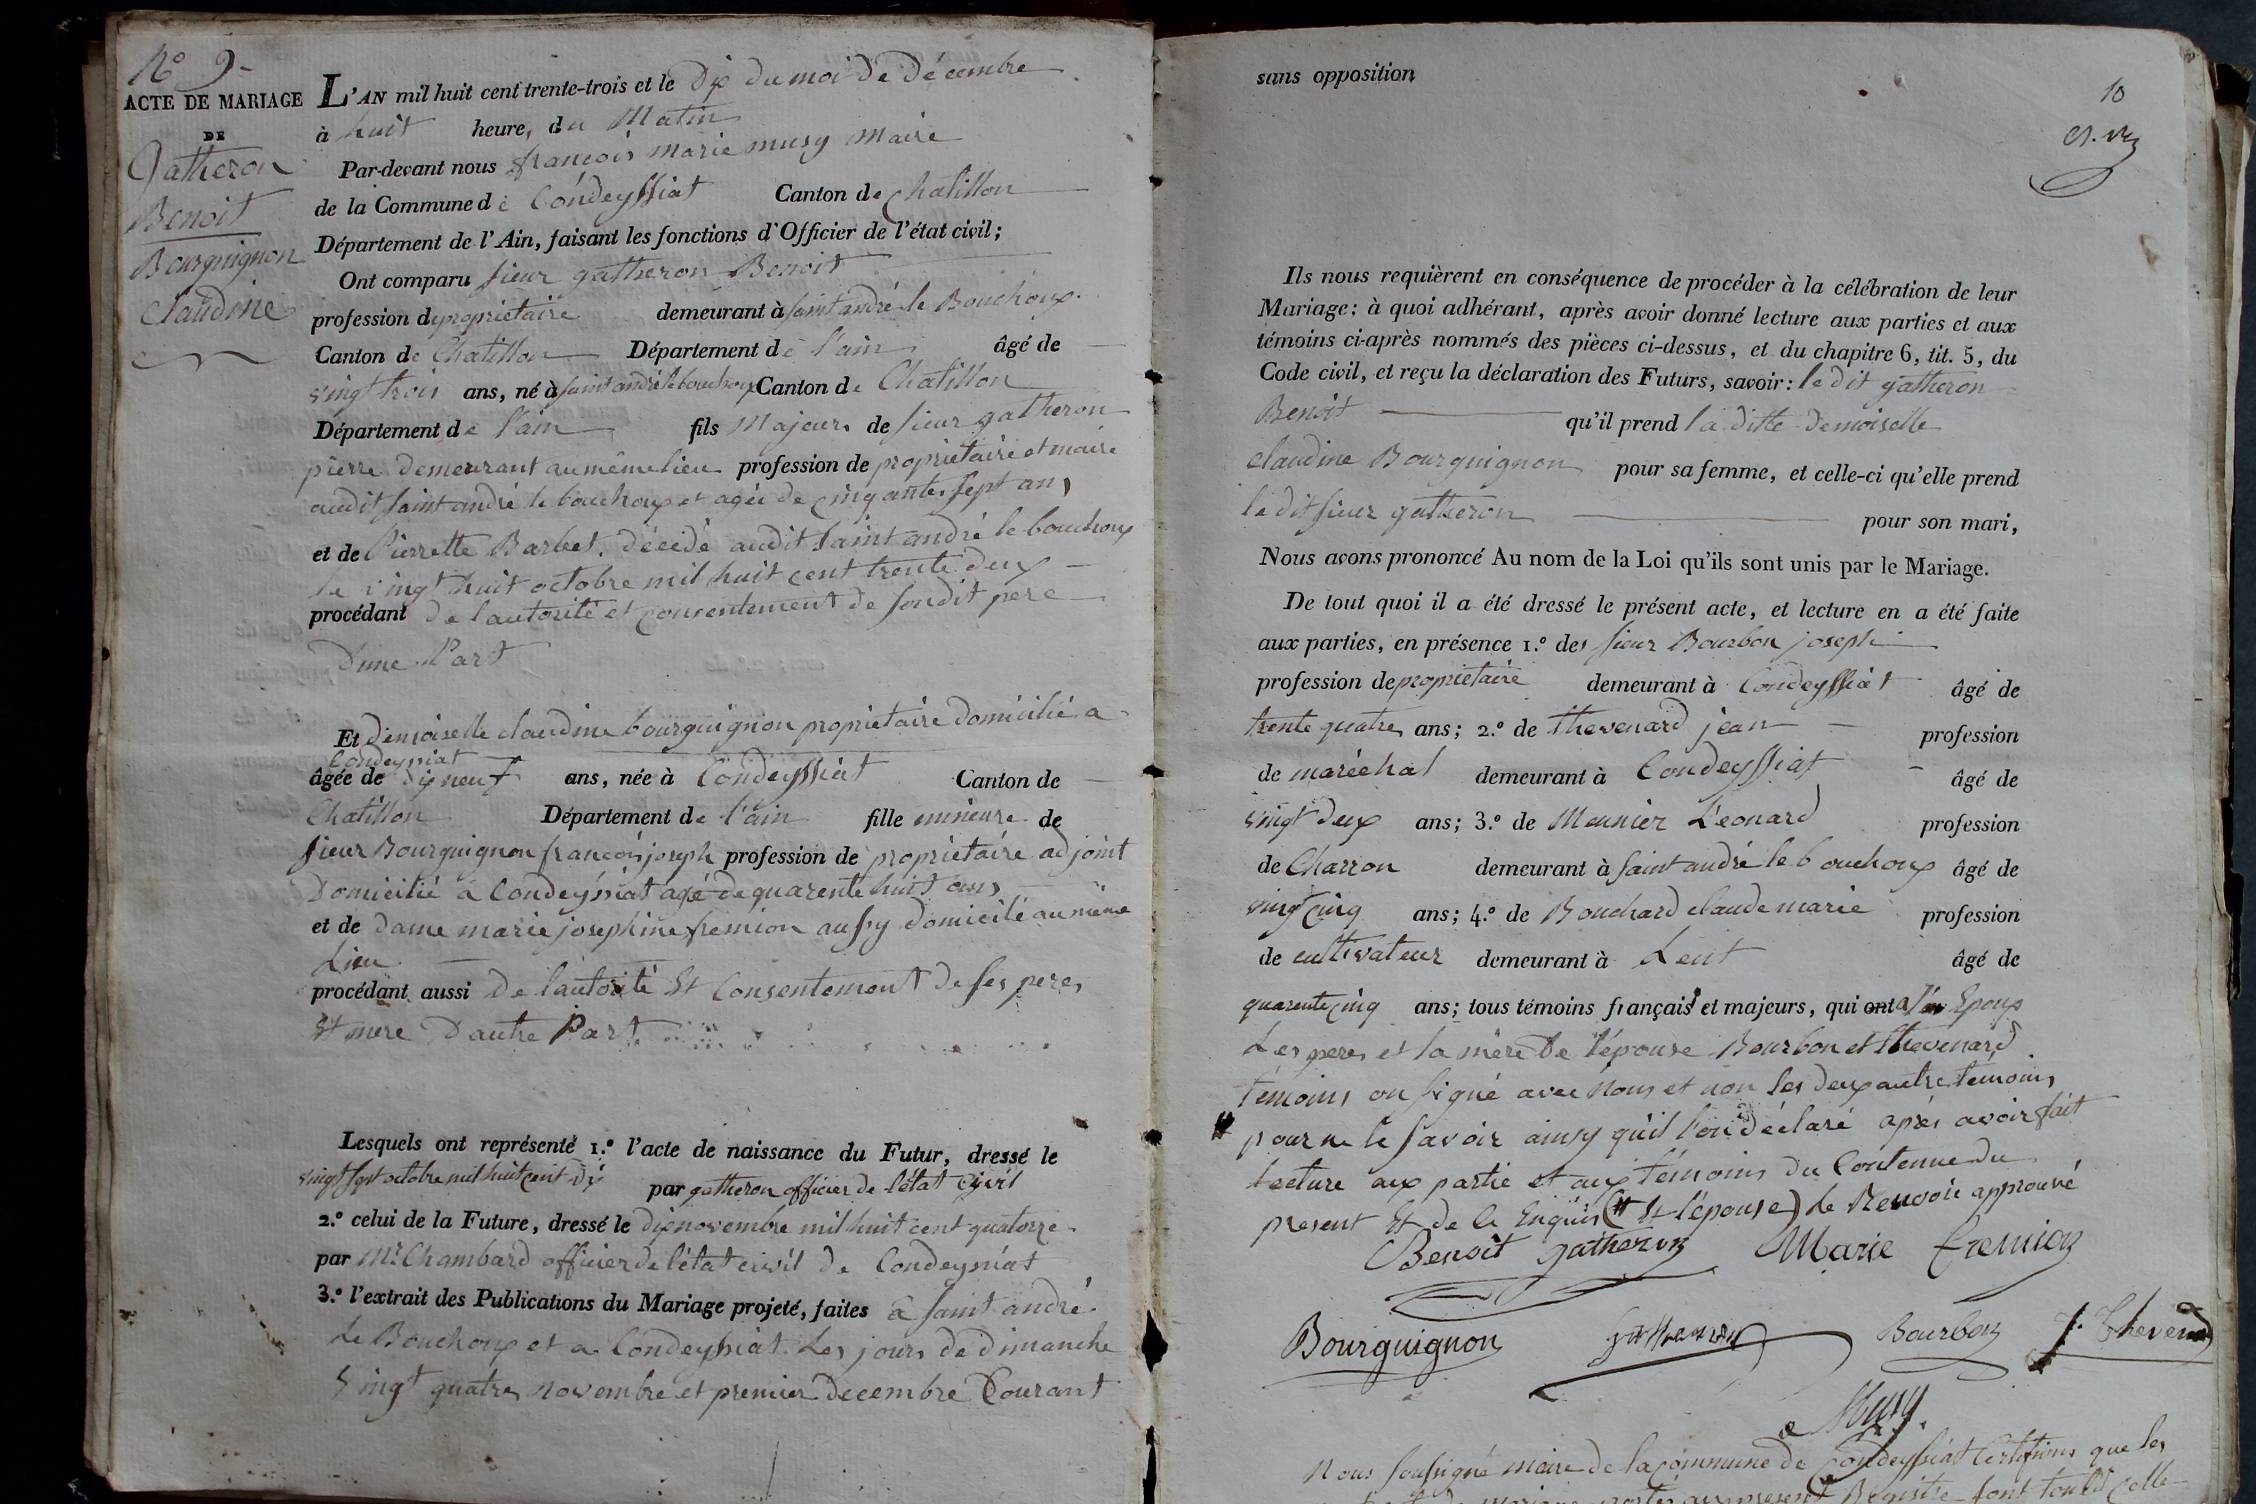 N.° 9-
ACTE DE MARIAGE
DE
Gatheron
Benoit
Bourguignon
Claudine
L'AN mil huit cent trente-trois et le Dix du moi De Décembre
à huit heure, du Matin
Par-devant nous françois marie musy Maire
de la Commune de Condeyssiat Canton de Chatillon
Département de l'Ain, faisant les fonctions d'Officier de l'état civil;
Ont comparu sieur gatheron Benoit
profession de propriétaire demeurant à saint andré le Bouchoux
Canton de Chatillon Département de l'ain âgé de
vingt trois ans, né à saint andré le bouchoux Canton de Chatillon
Département de l'ain fils Majeur de sieur gatheron
pierre demeurant au même lieu profession de propriétaire et maire
audit saint andré le bouchoux et agée de cinq ante sept ans
et de Pierrette Barbet. décédé audit saint andré le bouchoux
le vingt huit octobre mil huit cent trente deux
procédant de l'autorité et consentement de sondit pere
D'une Part
Et Demoiselle claudine bourguignon propriétaire Domicilié a
Condeyssiat
âgée de dix neuf ans, née à Condeyssiat Canton de
Chatillon Département de l'ain fille mineure de
sieur Bourguignon françois joseph profession de propriétaire adjoint
Domicilié a Condeyssiat agé de quarente huit ans
et de Dame marie josephine fremion aussy domicilé au même
Lieu
procédant aussi De l'autorité Et Consentement De ses peres
Et mere D'autre Part
Lesquels ont représenté 1.° l'acte de naissance du Futur, dressé le
vingt sept octobre mil huit cent dix par gatheron officier de l'état civil
2.° celui de la Future, dressé le dix novembre mil huit cent quatorze
par Mr Chambard officier de l'état civil De Condeyssiat
3.° l'extrait des Publications du Mariage projeté, faites a saint andré
le Bouchoux et a Condeyssiat. Les jours de Dimanche
vingt quatre Novembre et premier Decembre Courant
sans opposition
10
Ils nous requièrent en conséquence de procéder à la célébration de leur
Mariage; à quoi adhérant, après avoir donné lecture aux parties et aux
témoins ci-après nommés des pièces ci-dessus, et du chapitre 6, tit. 5, du
Code civil, et reçu la déclaration des Futurs, savoir: le dit gatheron
Benoit qu'il prend la ditte Demoiselle
claudine Bourguignon pour sa femme, et celle-ci qu'elle prend
le dit sieur gatheron pour son mari,
Nous avons prononcé Au nom de la Loi qu'ils sont unis par le Mariage.
De tout quoi il a été dressé le présent acte, et lecture en a été faite
aux parties, en présence 1.° des sieur Bourbon joseph
profession de propriétaire demeurant à Condeyssiat âgé de
trente quatre ans; 2.° de thevenard jean profession
de maréchal demeurant à Condeyssiat âgé de
vingt deux ans; 3.° de Meunier Léonard profession
de Charron demeurant à saint andré le bouchoux âgé de
vingt cinq ans; 4.° de Bouchard claude marie profession
de cultivateur demeurant à Lent âgé de
quarente cinq ans; tous témoins français et majeurs, qui ont Epoux
Les peres et la mère De l'épouse Bourbon et thevenard
témoins on signé avec Nous et non les deux autre temoins
pour ne le savoir ainsy qu'il l'on déclaré après avoir fait
lecture aux partie et aux témoins du Contenue du
present Et de le Enquis (# Et l'épouse) le Renvoie approuvé
Benoit gatheron Marie fremion
Bourguignon gatheron Bourbon J. Thevenard
Musy
Nous soussigné maire de la commune de Condeyssiat Certifions que les